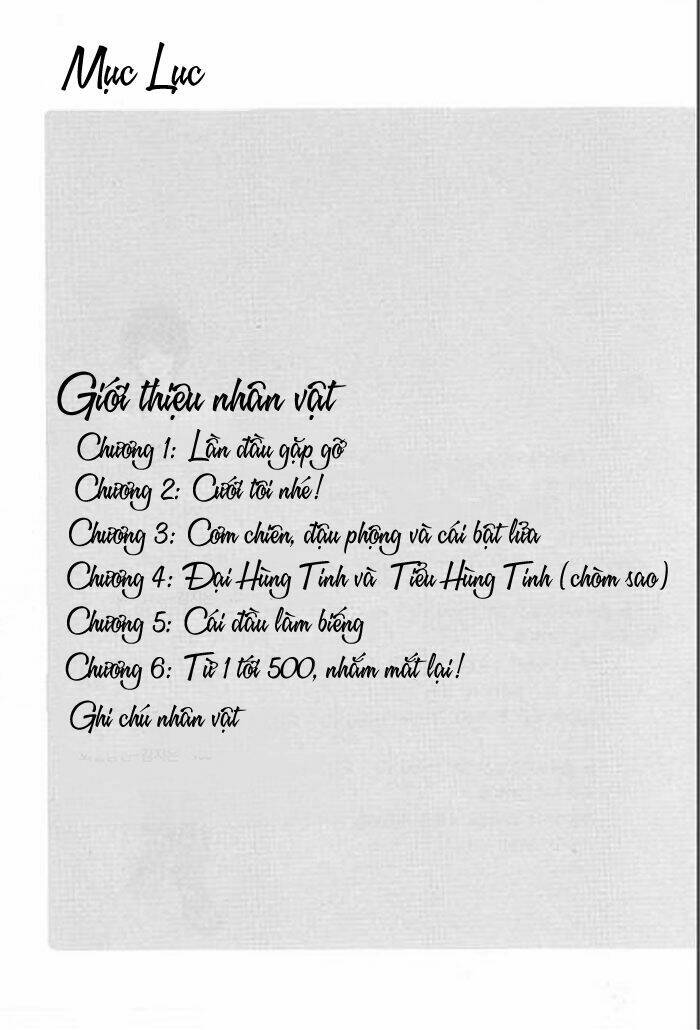 Mục Lục
Giới thiệu nhân vật
Chương 1: Lần đầu gặp gỡ
Chương 2: Cưới tôi nhé!
Chương 3: Cơm chiên, đậu phộng và cái bật lửa
Chương 4: Đại Hùng Tinh và Tiểu Hùng Tinh (chòm sao)
Chương 5: Cái đầu làm biếng
Chương 6: Từ 1 tới 500, nhắm mắt lại!
Ghi chú nhân vật